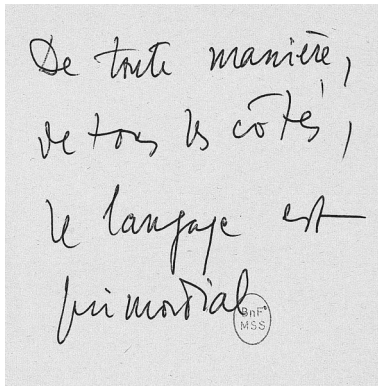 De toute manière,
de tous les côtés,
le langage est
primordial
BnF
MSS